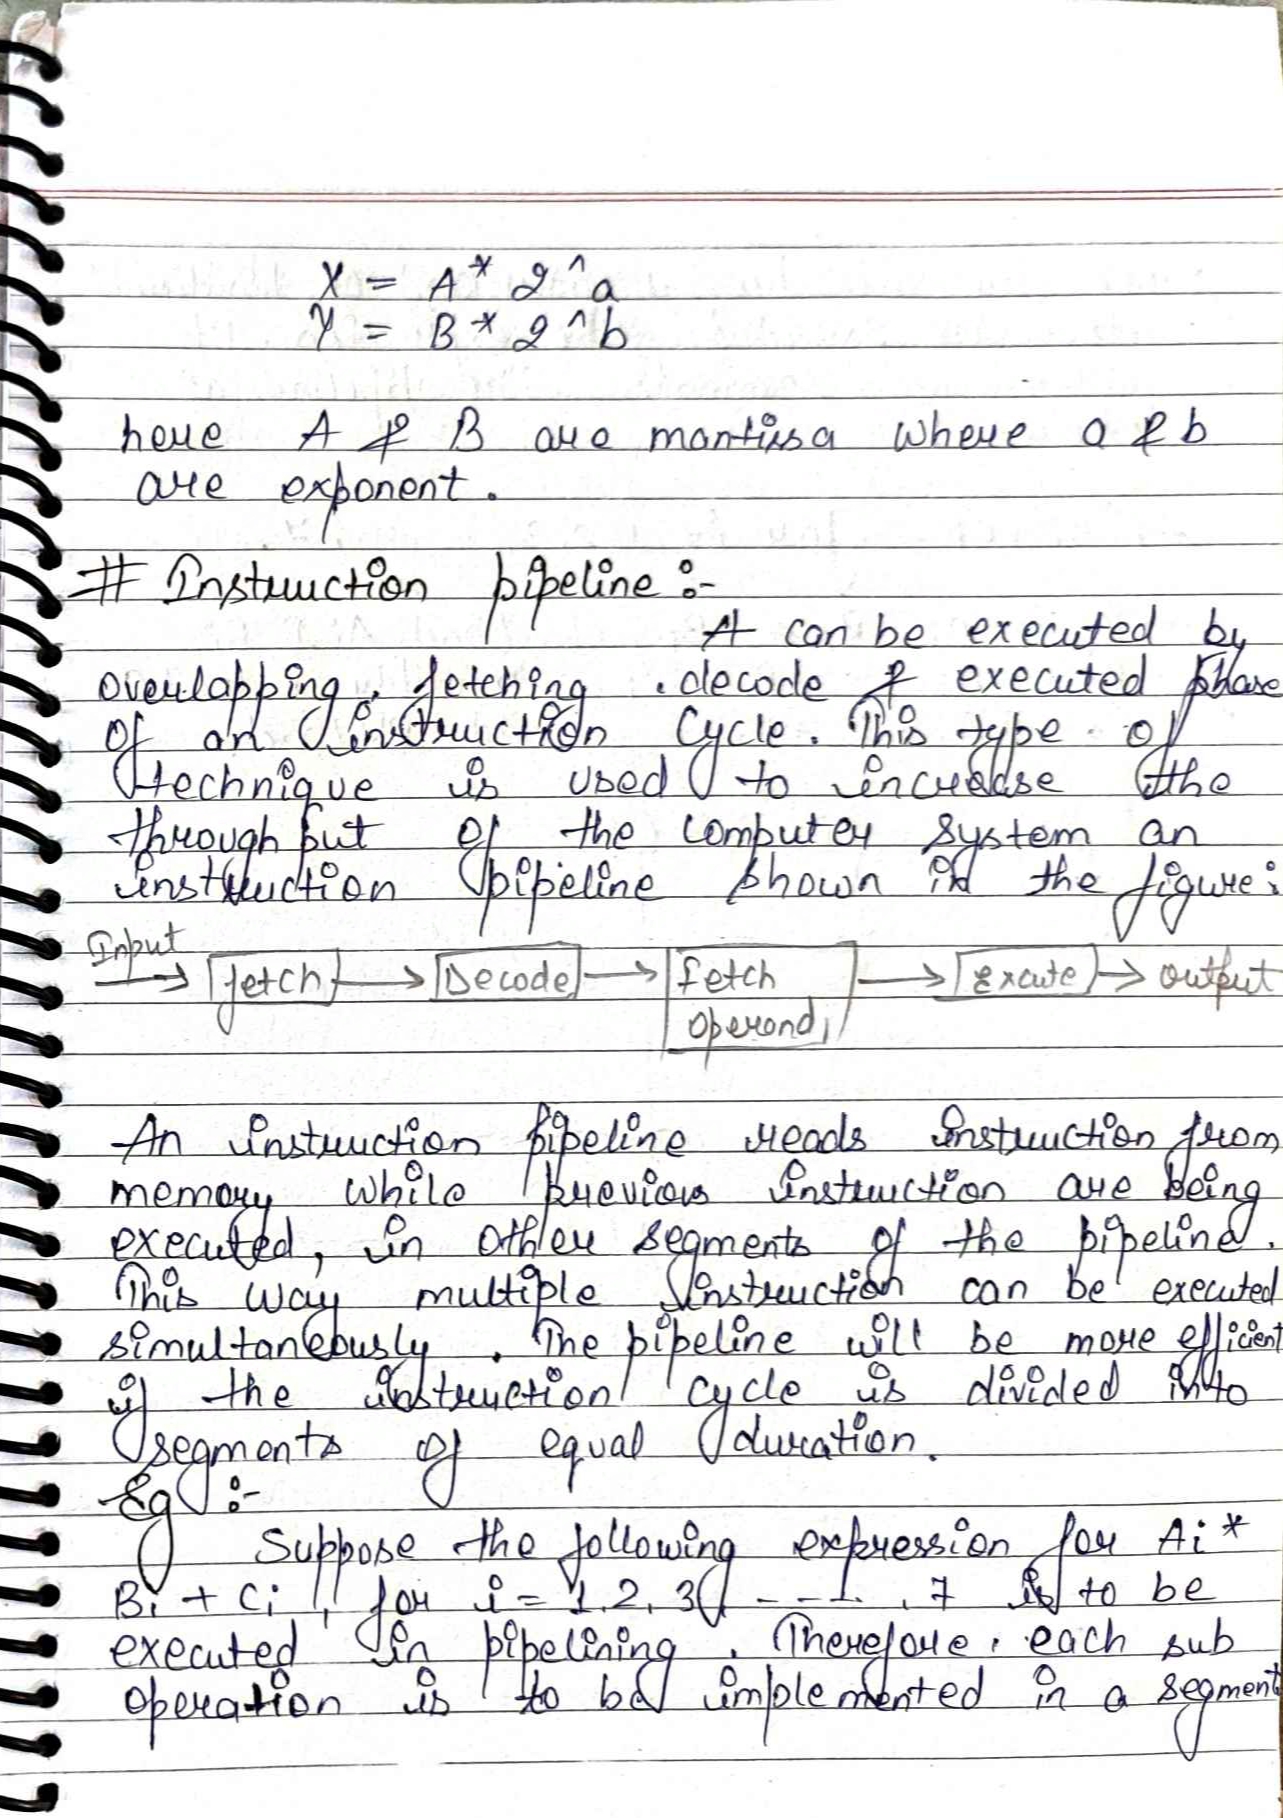 X = A * 2 ^ a
Y = B * 2 ^ b
here A & B are mantissa where a & b
are exponent.
# Instruction pipeline :-
It can be executed by
overlapping, fetching , decode & executed phase
of an instruction cycle. This type of
technique is used to increase the
throughput of the computer system an
instruction pipeline shown in the figure :
Input → fetch → Decode → fetch operand → Excute → output
An instruction pipeline reads instruction from
memory while previous instruction are being
executed, in other segments of the pipeline.
This way multiple instruction can be executed
simultaneously . The pipeline will be more efficient
if the instruction cycle is divided into
segments of equal duration.
Eg :-
Suppose the following expression for Ai *
Bi + Ci , for i = 1, 2, 3, ----- , 7 is to be
executed in pipelining . Therefore, each sub
operation is to be implemented in a segment